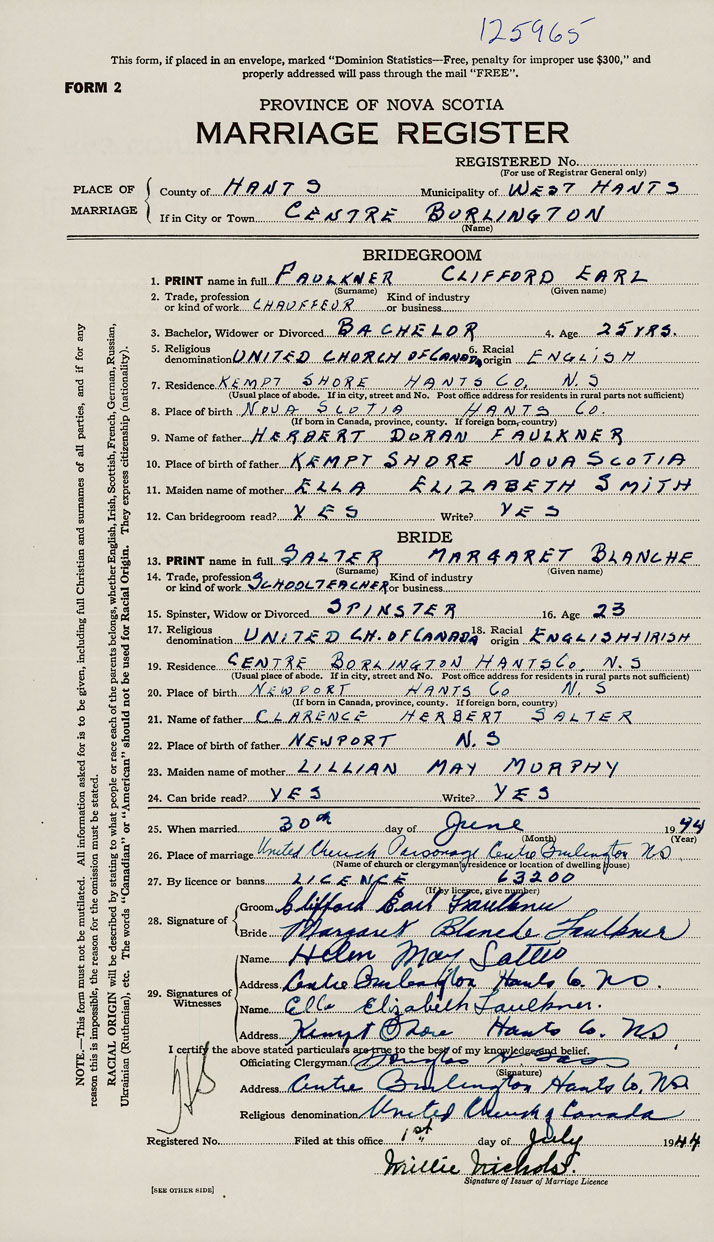 125965
This form, if placed in an envelope, marked "Dominion Statistics—Free, penalty for improper use $300," and
properly addressed will pass through the mail "FREE".
FORM 2
PROVINCE OF NOVA SCOTIA
MARRIAGE REGISTER
REGISTERED No.
(For use of Registrar General only)
PLACE OF MARRIAGE
County of HANTS Municipality of WEST HANTS
If in City or Town CENTRE BURLINGTON
(Name)
BRIDEGROOM
1. PRINT name in full FAULKNER CLIFFORD EARL
(Surname) (Given name)
2. Trade, profession or kind of work CHAUFFEUR Kind of industry or business
3. Bachelor, Widower or Divorced BACHELOR 4. Age 25 YRS.
5. Religious denomination UNITED CHURCH OF CANADA 6. Racial origin ENGLISH
7. Residence KEMPT SHORE HANTS CO, N. S
(Usual place of abode. If in city, street and No. Post office address for residents in rural parts not sufficient)
8. Place of birth NOVA SCOTIA HANTS CO.
(If born in Canada, province, county. If foreign born, country)
9. Name of father HERBERT DORAN FAULKNER
10. Place of birth of father KEMPT SHORE NOVA SCOTIA
11. Maiden name of mother ELLA ELIZABETH SMITH
12. Can bridegroom read? YES Write? YES
BRIDE
13. PRINT name in full SALTER MARGARET BLANCHE
(Surname) (Given name)
14. Trade, profession or kind of work SCHOOLTEACHER Kind of industry or business
15. Spinster, Widow or Divorced SPINSTER 16. Age 23
17. Religious denomination UNITED CH. OF CANADA 18. Racial origin ENGLISH + IRISH
19. Residence CENTRE BURLINGTON HANTS CO, N. S
(Usual place of abode. If in city, street and No. Post office address for residents in rural parts not sufficient)
20. Place of birth NEWPORT HANTS CO N. S
(If born in Canada, province, county. If foreign born, country)
21. Name of father CLARENCE HERBERT SALTER
22. Place of birth of father NEWPORT N. S
23. Maiden name of mother LILLIAN MAY MURPHY
24. Can bride read? YES Write? YES
25. When married 30th day of June 1944
(Month) (Year)
26. Place of marriage United Church Parsonage Centre Burlington NS
(Name of church or clergyman's residence or location of dwelling house)
27. By licence or banns LICENCE 63200
(If by licence, give number)
28. Signature of
Groom Clifford Earl Faulkner
Bride Margaret Blanche Faulkner
29. Signatures of Witnesses
Name Helen May
Address Centre Burlington Hants Co. NS.
Name Ella Elizabeth Faulkner.
Address Kempt Shore Hants Co. NS
I certify the above stated particulars are true to the best of my knowledge and belief.
Officiating Clergyman Douglas H.
(Signature)
Address Centre Burlington Hants Co, NS
Religious denomination United Church of Canada
Registered No. Filed at this office 1st day of July 1944
Millie Nichols.
Signature of Issuer of Marriage Licence
[SEE OTHER SIDE]
NOTE.—This form must not be mutilated. All information asked for is to be given, including full Christian and surnames of all parties, and if for any
reason this is impossible, the reason for the omission must be stated.
RACIAL ORIGIN will be described by stating to what people or race each of the parents belongs, whether English, Irish, Scottish, French, German, Russian,
Ukrainian (Ruthenian), etc. The words "Canadian" or "American" should not be used for Racial Origin. They express citizenship (nationality).